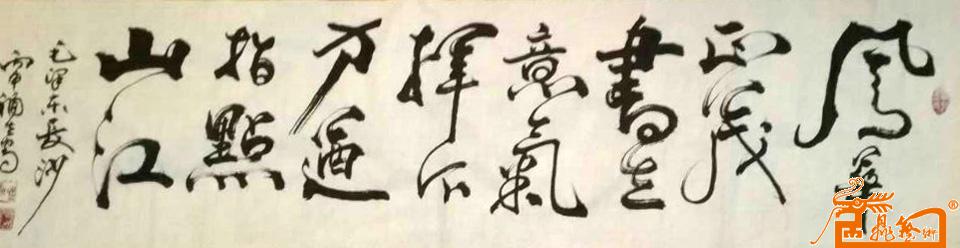 風華
正茂
書生
意氣
揮斥
方遒
指點
山江
毛澤东長沙
丙申